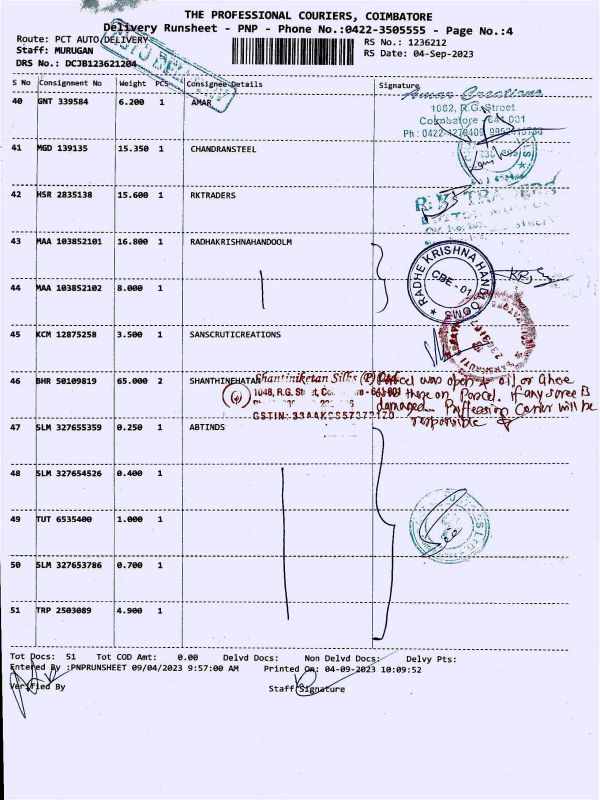 THE PROFESSIONAL COURIERS, COIMBATORE
Delivery Runsheet - PNP - Phone No.:0422-3505555 - Page No.:4
Route: PCT AUTO DELIVERY RS No.: 1236212
Staff: MURUGAN RS Date: 04-Sep-2023
DRS No.: DCJB123621204
AUTO DELIVERY
S No Consignment No Weight PCS Consignee Details Signature
40 GNT 339584 6.200 1 AMAR
Amar Creations
1062, R.G. Street
Coimbatore - 641 001
Ph : 0422-
41 MGD 139135 15.350 1 CHANDRANSTEEL
42 HSR 2835138 15.600 1 RKTRADERS
R.K. TRADERS
43 MAA 103852101 16.800 1 RADHAKRISHNAHANDOOLM
RADHE KRISHNA HAND LOOMS
CBE - 01
44 MAA 103852102 8.000 1
45 KCM 12875258 3.500 1 SANSCRUTICREATIONS
46 BHR 50109819 65.000 2 SHANTHINEHATAN
Shantiniketan Silks (P) Ltd
1048, R.G. Street, - 641 001
GSTIN: 33AAKCS
Parcel was open & oil or
there on Parcel. If any
damaged... Proffession Carier will be
responsible
47 SLM 327655359 0.250 1 ABTINDS
48 SLM 327654526 0.400 1
49 TUT 6535400 1.000 1
50 SLM 327653786 0.700 1
51 TRP 2503089 4.900 1
Tot Docs: 51 Tot COD Amt: 0.00 Delvd Docs: Non Delvd Docs: Delvy Pts:
Entered By :PNPRUNSHEET 09/04/2023 9:57:00 AM Printed On: 04-09-2023 10:09:52
Verified By Staff Signature